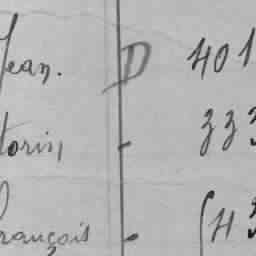 Jean. D 401
torin - 333
François -